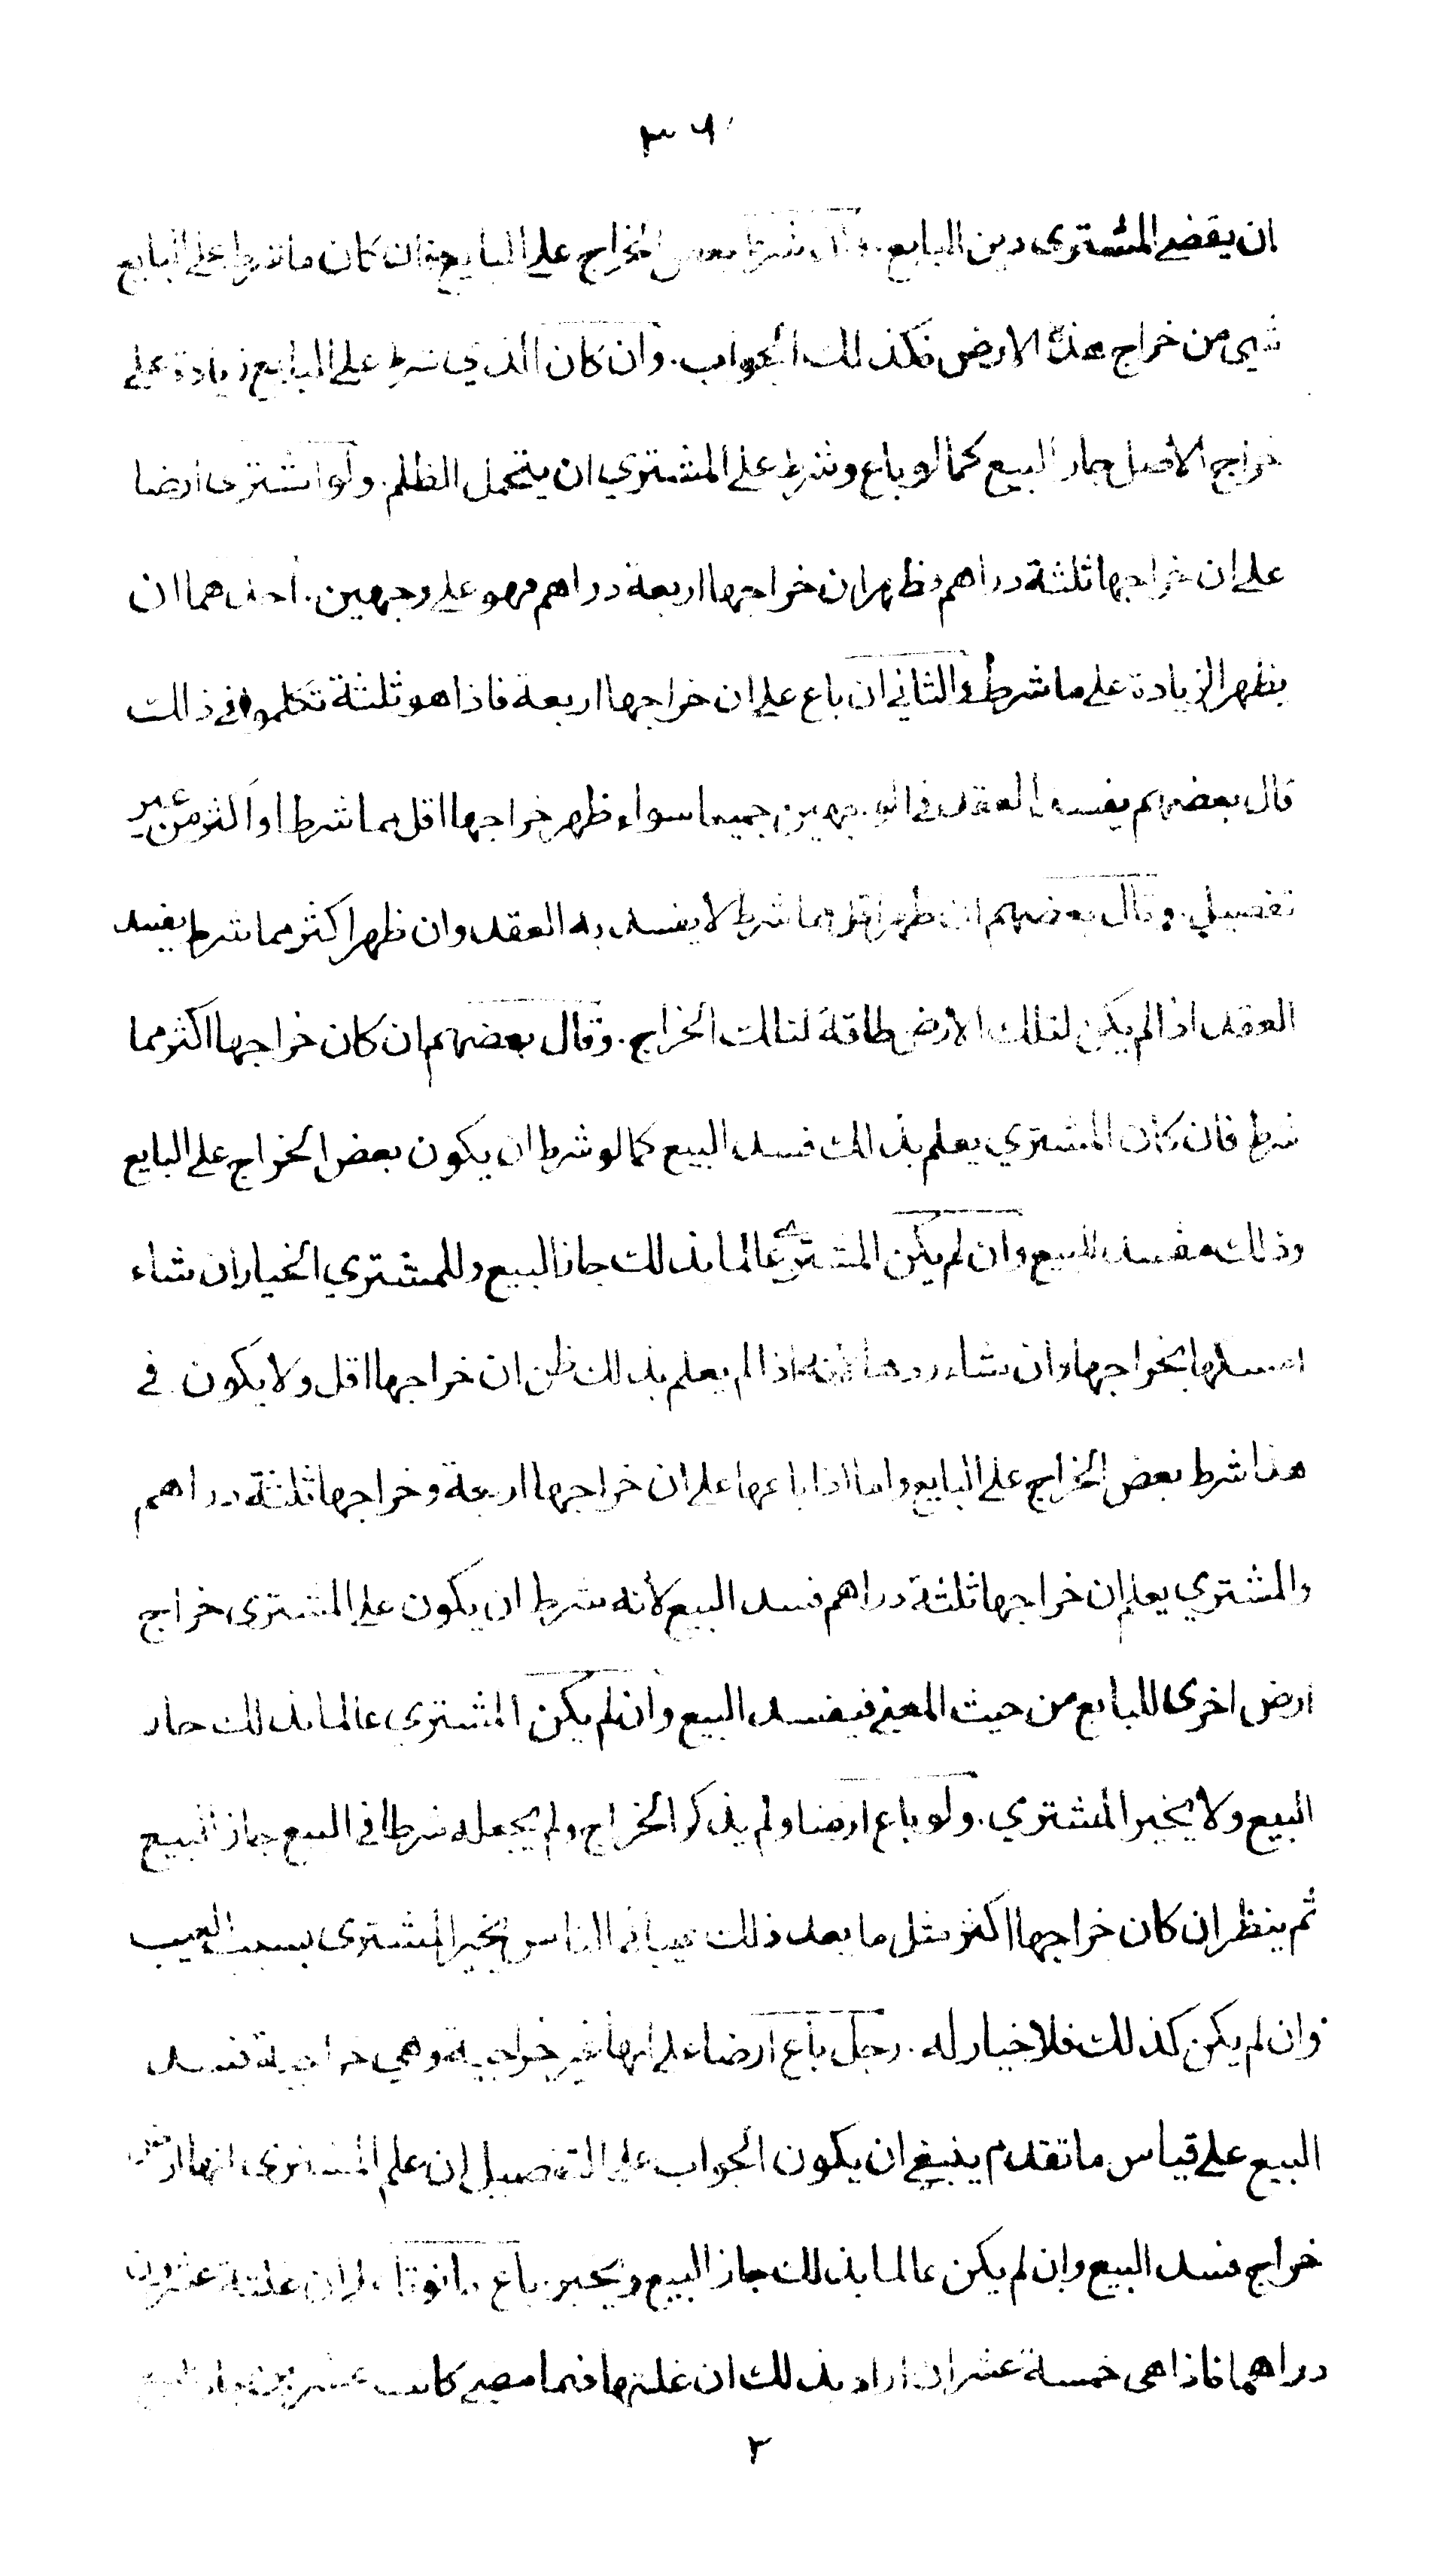 ان يقضي المشترى دين البايع . وان شرط بعض الخراج على البايع فان كان ما شرط على البايع
شيئ من خراج هذه الارض فكذلك الجواب . وان كان الذي شرط على البايع زيادة على
خراج الاصل جاز البيع كما لو باع وشرط على المشتري ان يتحمل الظلم . ولو اشترى ارضا
على ان خراجها ثلثة دراهم فظهر ان خراجها اربعة دراهم فهو على وجهين . احدهما ان
يظهر الزيادة على ما شرط والثاني ان باع على ان خراجها اربعة فاذا هو ثلثة تكلموا في ذلك
قال بعضهم يفسد العقد في الوجهين جميعا سواء ظهر خراجها اقل مما شرط او اكثر من غير
تفصيل . وقال بعضهم ان ظهر اقل مما شرط لا يفسد به العقد وان ظهر اكثر مما شرط يفسد
العقد اذا لم يكن لتلك الارض طاقة لتلك الخراج . وقال بعضهم ان كان خراجها اكثر مما
شرط فان كان المشتري يعلم بذلك فسد البيع كما لو شرط ان يكون بعض الخراج على البايع
وذلك مفسد للبيع وان لم يكن المشتري عالما بذلك جاز البيع وللمشتري الخيار ان شاء
امسكها بخراجها وان شاء ردها لانه اذا لم يعلم بذلك ظن ان خراجها اقل ولا يكون في
هذا شرط بعض الخراج على البايع واما اذا باعها على ان خراجها اربعة وخراجها ثلثة دراهم
والمشتري يعلم ان خراجها ثلثة دراهم فسد البيع لأنه شرط ان يكون على المشترى خراج
ارض اخرى للبايع من حيث المعنى فيفسد البيع وان لم يكن المشتري عالما بذلك جاز
البيع ولا يخير المشتري . ولو باع ارضا ولم يذكر الخراج ولم يجعله شرطا في البيع جاز البيع
ثم ينظر ان كان خراجها اكثر مثل ما يعد ذلك عيبا في الناس يخير المشترى بسبب العيب
وان لم يكن كذلك فلا خيار له . رجل باع ارضا على انها غير خراجية وهي خراجية فسد
البيع على قياس ما تقدم ينبغي ان يكون الجواب على التفصيل ان علم المشترى انها ارض
خراج فسد البيع وان لم يكن عالما بذلك جاز البيع ويخير . باع حانوتا على ان غلته عشرون
دراهما فاذا هى خمسة عشر ان اراد بذلك ان غلتها فيما مضى كانت عشرين جاز البيع
٢